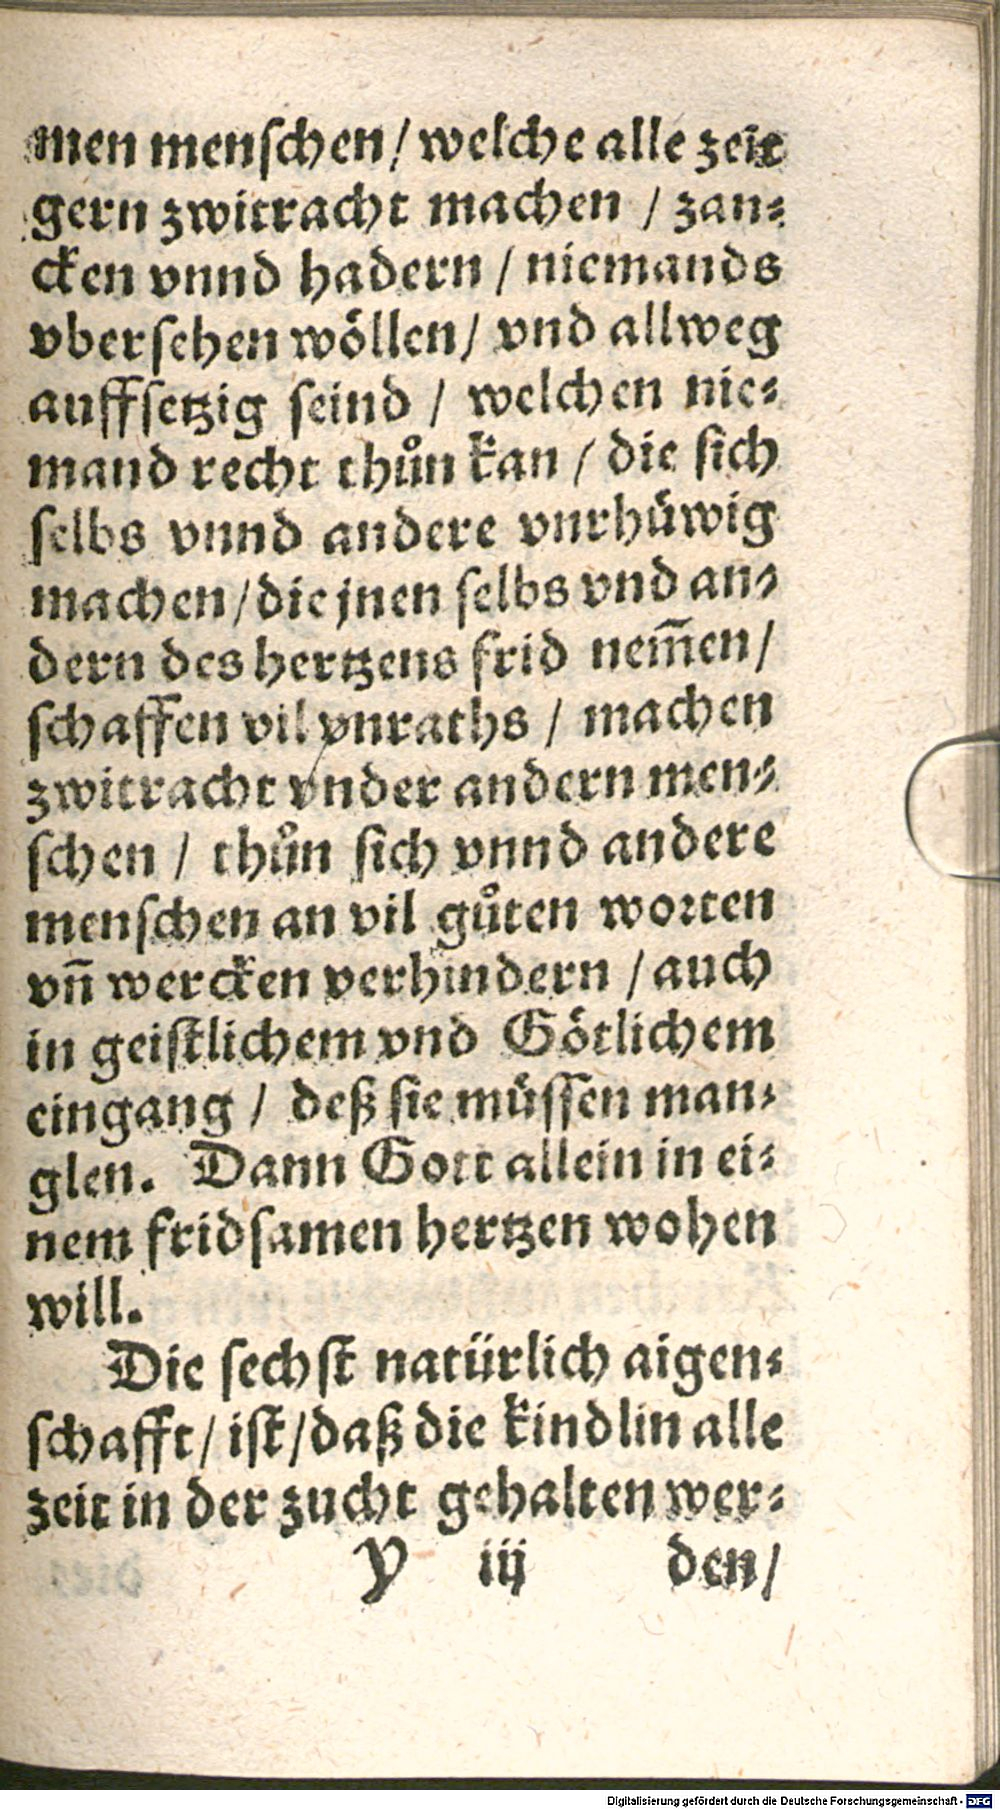 men menſchen / welche alle zeit
gern zwitracht machen / zan⸗
cken vnnd hadern / niemands
vberſehen wöllen / vnd allweg
auffſetzig ſeind / welchen nie⸗
mand recht thůn kan / die ſich
ſelbs vnnd andere vnrhüwig
machen / die jnen ſelbs vnd an⸗
dern des hertzens frid nem̃en /
ſchaffen vil vnraths / machen
zwitracht vnder andern men⸗
ſchen / thůn ſich vnnd andere
menſchen an vil gůten worten
vñ wercken verhindern / auch
in geiſtlichem vnd Götlichem
eingang / deß ſie müſſen man⸗
glen. Dann Gott allein in ei⸗
nem fridſamen hertzen wohen
will.
Die ſechſt natürlich aigen⸗
ſchafft / iſt / daß die kindlin alle
zeit in der zucht gehalten wer⸗
y iij den /
Digitalisierung gefördert durch die Deutsche Forschungsgemeinschaft - DFG